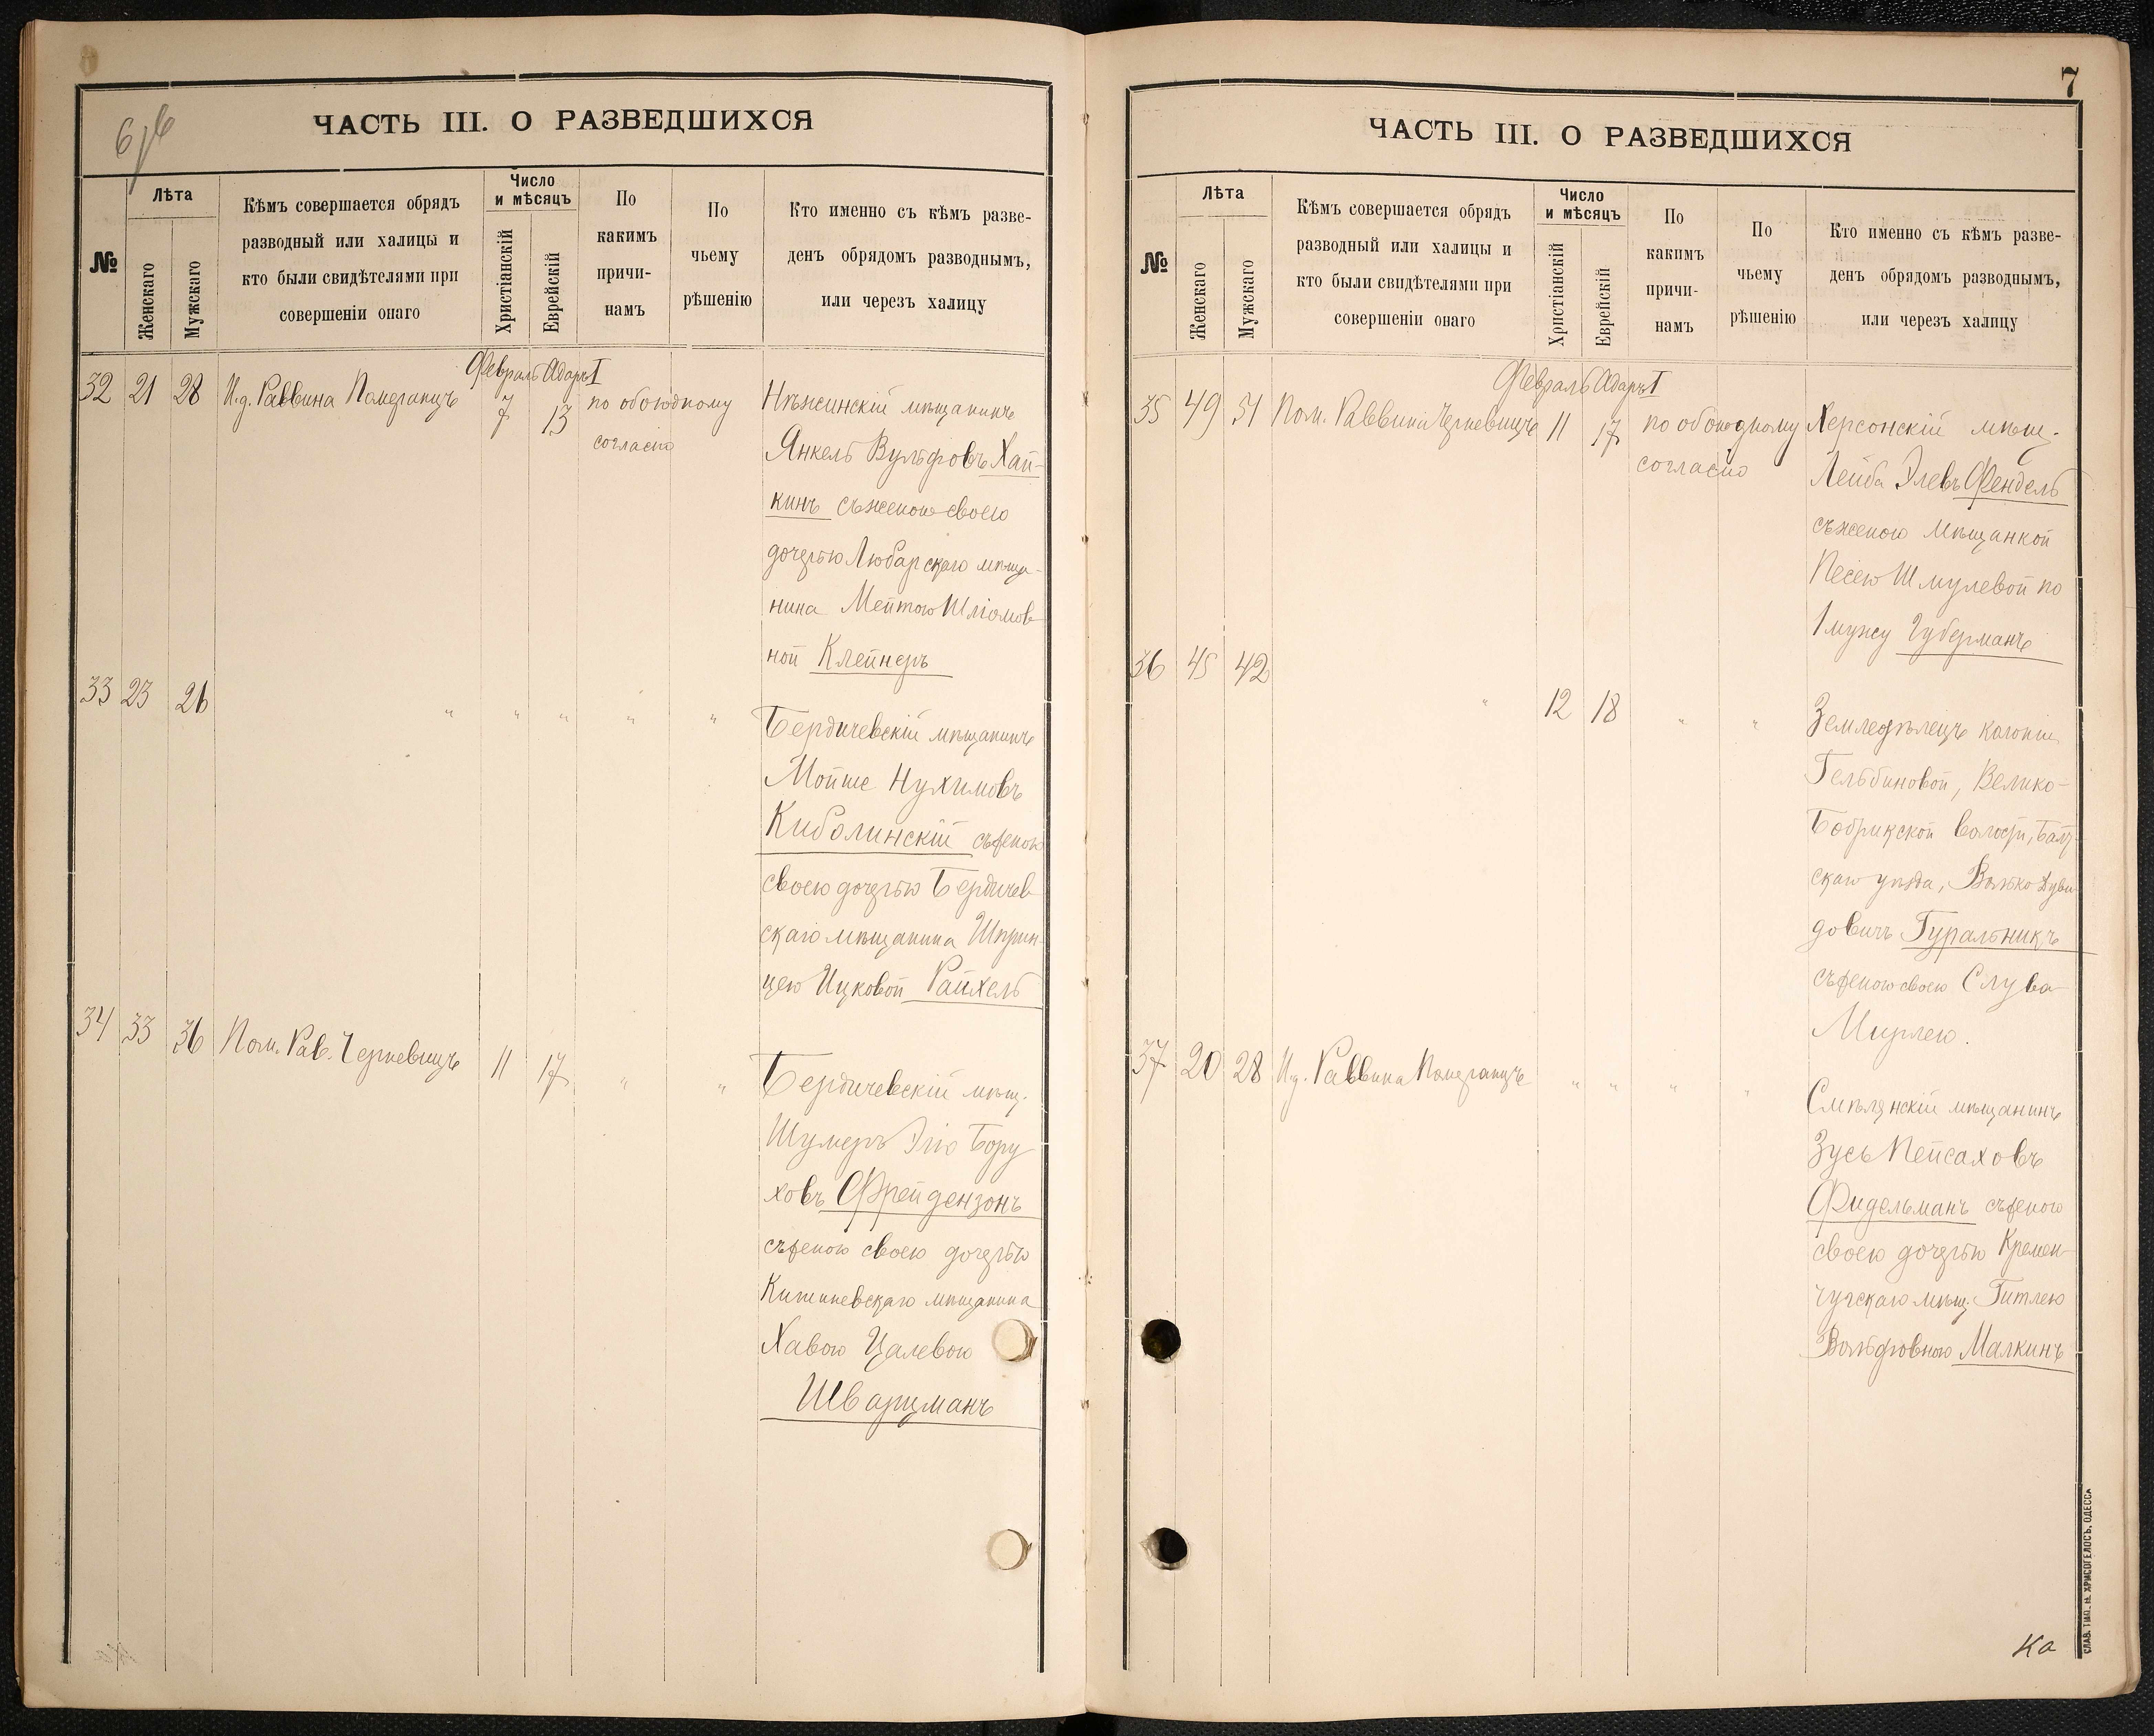 ЧАСТЬ III. О РАЗВЕДШИХСЯ
№
Лѣта
Женскаго
Мужскаго
Кѣмъ совершается обрядъ
разводный или халицы и
кто были свидѣтелями при
совершеніи онаго
Число
и мѣсяцъ
Христіанскій
Еврейскій
По
какимъ
причи-
намъ
По
чьему
рѣшенію
Кто именно съ кѣмъ разве-
денъ обрядомъ разводнымъ,
или черезъ халицу
Февраль Адаръ I
32 21 28 И.д. Раввина Померанцъ 7 13 по обоюдному
согласію
Нѣжинскій мѣщанинъ
Янкель Вульфовъ Хай-
кинъ съ женою своею
дочерью Любарскаго мѣща-
нина Мейтою Шліомов-
ной Клейнеръ
33 23 26 " " " " "
Бердичевскій мѣщанинъ
Мойше Нухимовъ
Киболинскій съ женою
своею дочерью Бердичев-
скаго мѣщанина Шприн-
цею Ицковой Райхель
34 33 36 Пом. Рав. Черневицъ 11 17 " "
Бердичевскій мѣщ.
Шумеръ Эліо Бору
ховъ Фрейдензонъ
съ женою своею дочерью
Кишиневскаго мѣщанина
Хавою Цалевою
Шварцманъ
7
ЧАСТЬ III. О РАЗВЕДШИХСЯ
№
Лѣта
Женскаго
Мужскаго
Кѣмъ совершается обрядъ
разводный или халицы и
кто были свидѣтелями при
совершеніи онаго
Число
и мѣсяцъ
Христіанскій
Еврейскій
По
какимъ
причи-
намъ
По
чьему
рѣшенію
Кто именно съ кѣмъ разве-
денъ обрядомъ разводнымъ,
или черезъ халицу
Февраль Адаръ I
35 49 51 Пом. Раввина Черневицъ 11 17 по обоюдному
согласію
Херсонскій мѣщ.
Лейба Элевъ Фендель
съ женою мѣщанкой
Песею Шмулевой по
1 мужу Губерманъ
36 45 42 " 12 18 " "
Земледѣлецъ колоніи
Гельбиновой, Велико-
Бобрикской волости, Балт-
скаго уѣзда, Волько Дуви-
довичъ Гуральникъ
съ женою своею Слува
Мирлею.
37 20 28 И.д. Раввина Померанцъ " " " "
Смѣлянскій мѣщанинъ
Зусь Пейсаховъ
Фидельманъ съ женою
своею дочерью Кремен-
чугскаго мѣщ. Гитлею
Вольфовною Малкинъ
Ка
СЛАВ. ТИП. Н. ХРИСОГЕЛОСЪ, ОДЕССА